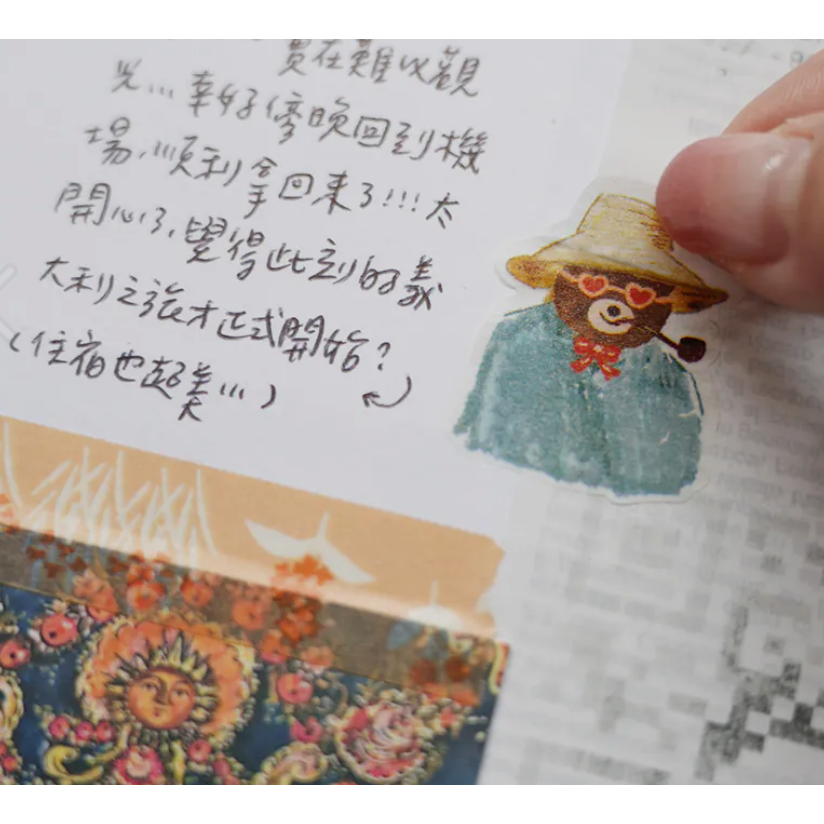 實在難以觀
光...幸好傍晚回到機
場,順利拿回來了!!!太
開心了,覺得此刻的義
大利之旅才正式開始?
(住宿也超美...)